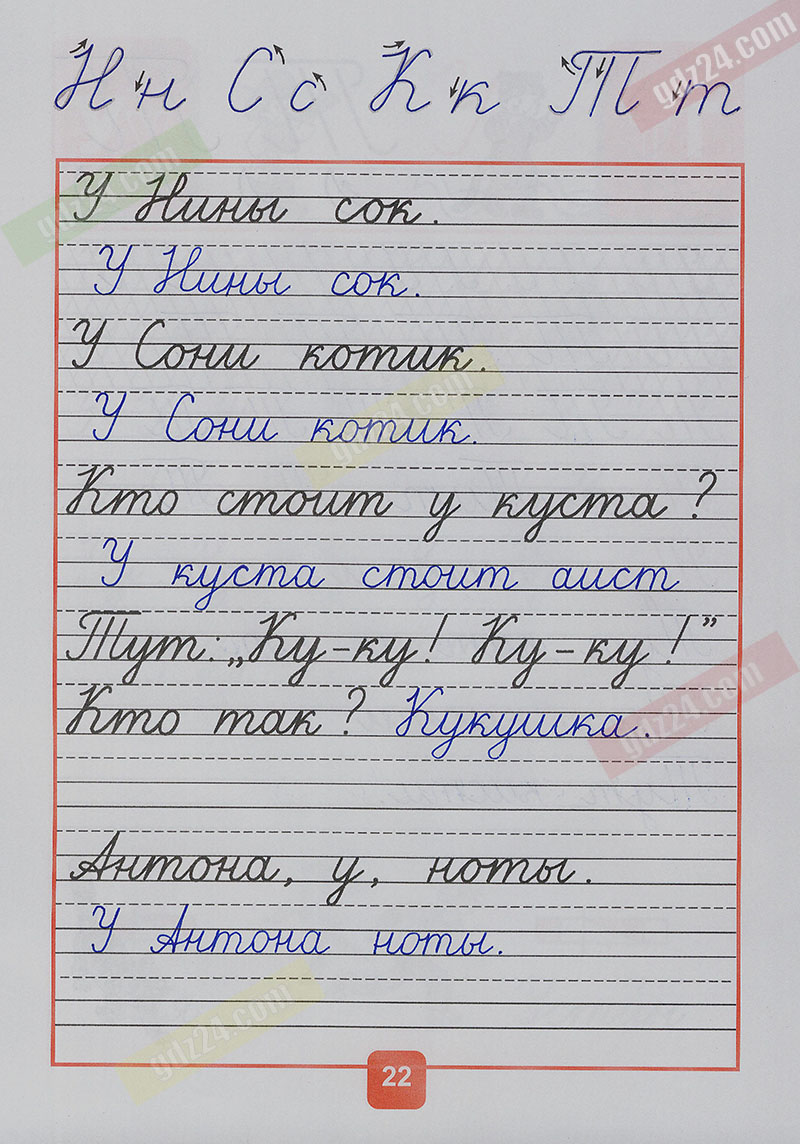 Н н С с К к Т т
У Нины сок.
У Нины сок.
У Сони котик.
У Сони котик.
Кто стоит у куста?
У куста стоит аист
Тут: „Ку-ку! Ку-ку!”
Кто так? Кукушка.
Антона, у, ноты.
У Антона ноты.
22
gdz24.com
gdz24.com
gdz24.com
gdz24.com
gdz24.com